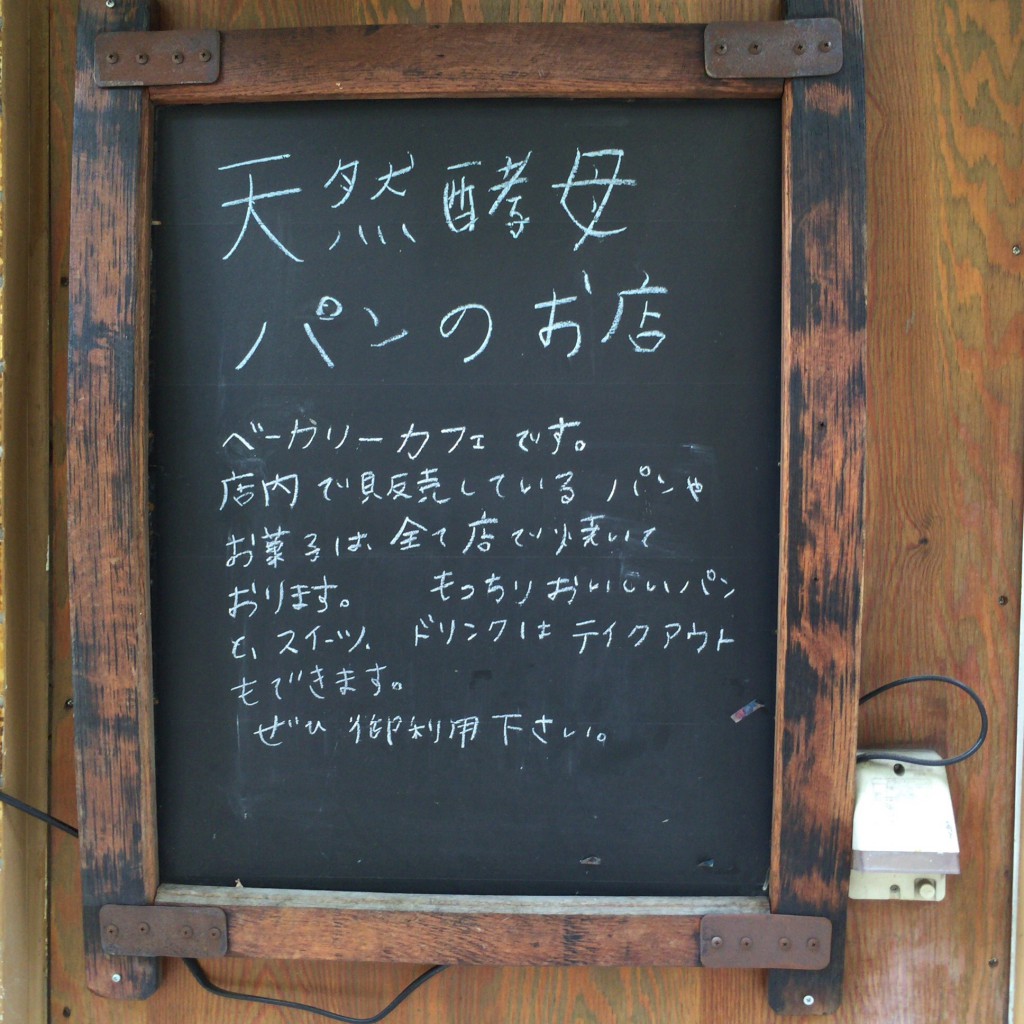 天然酵母
パンのお店
ベーカリーカフェです。
店内で販売している パンや
お菓子は、全て店で焼いて
おります。 もっちりおいしいパン
と、スイーツ、ドリンクは テイクアウト
もできます。
ぜひ 御利用下さい。